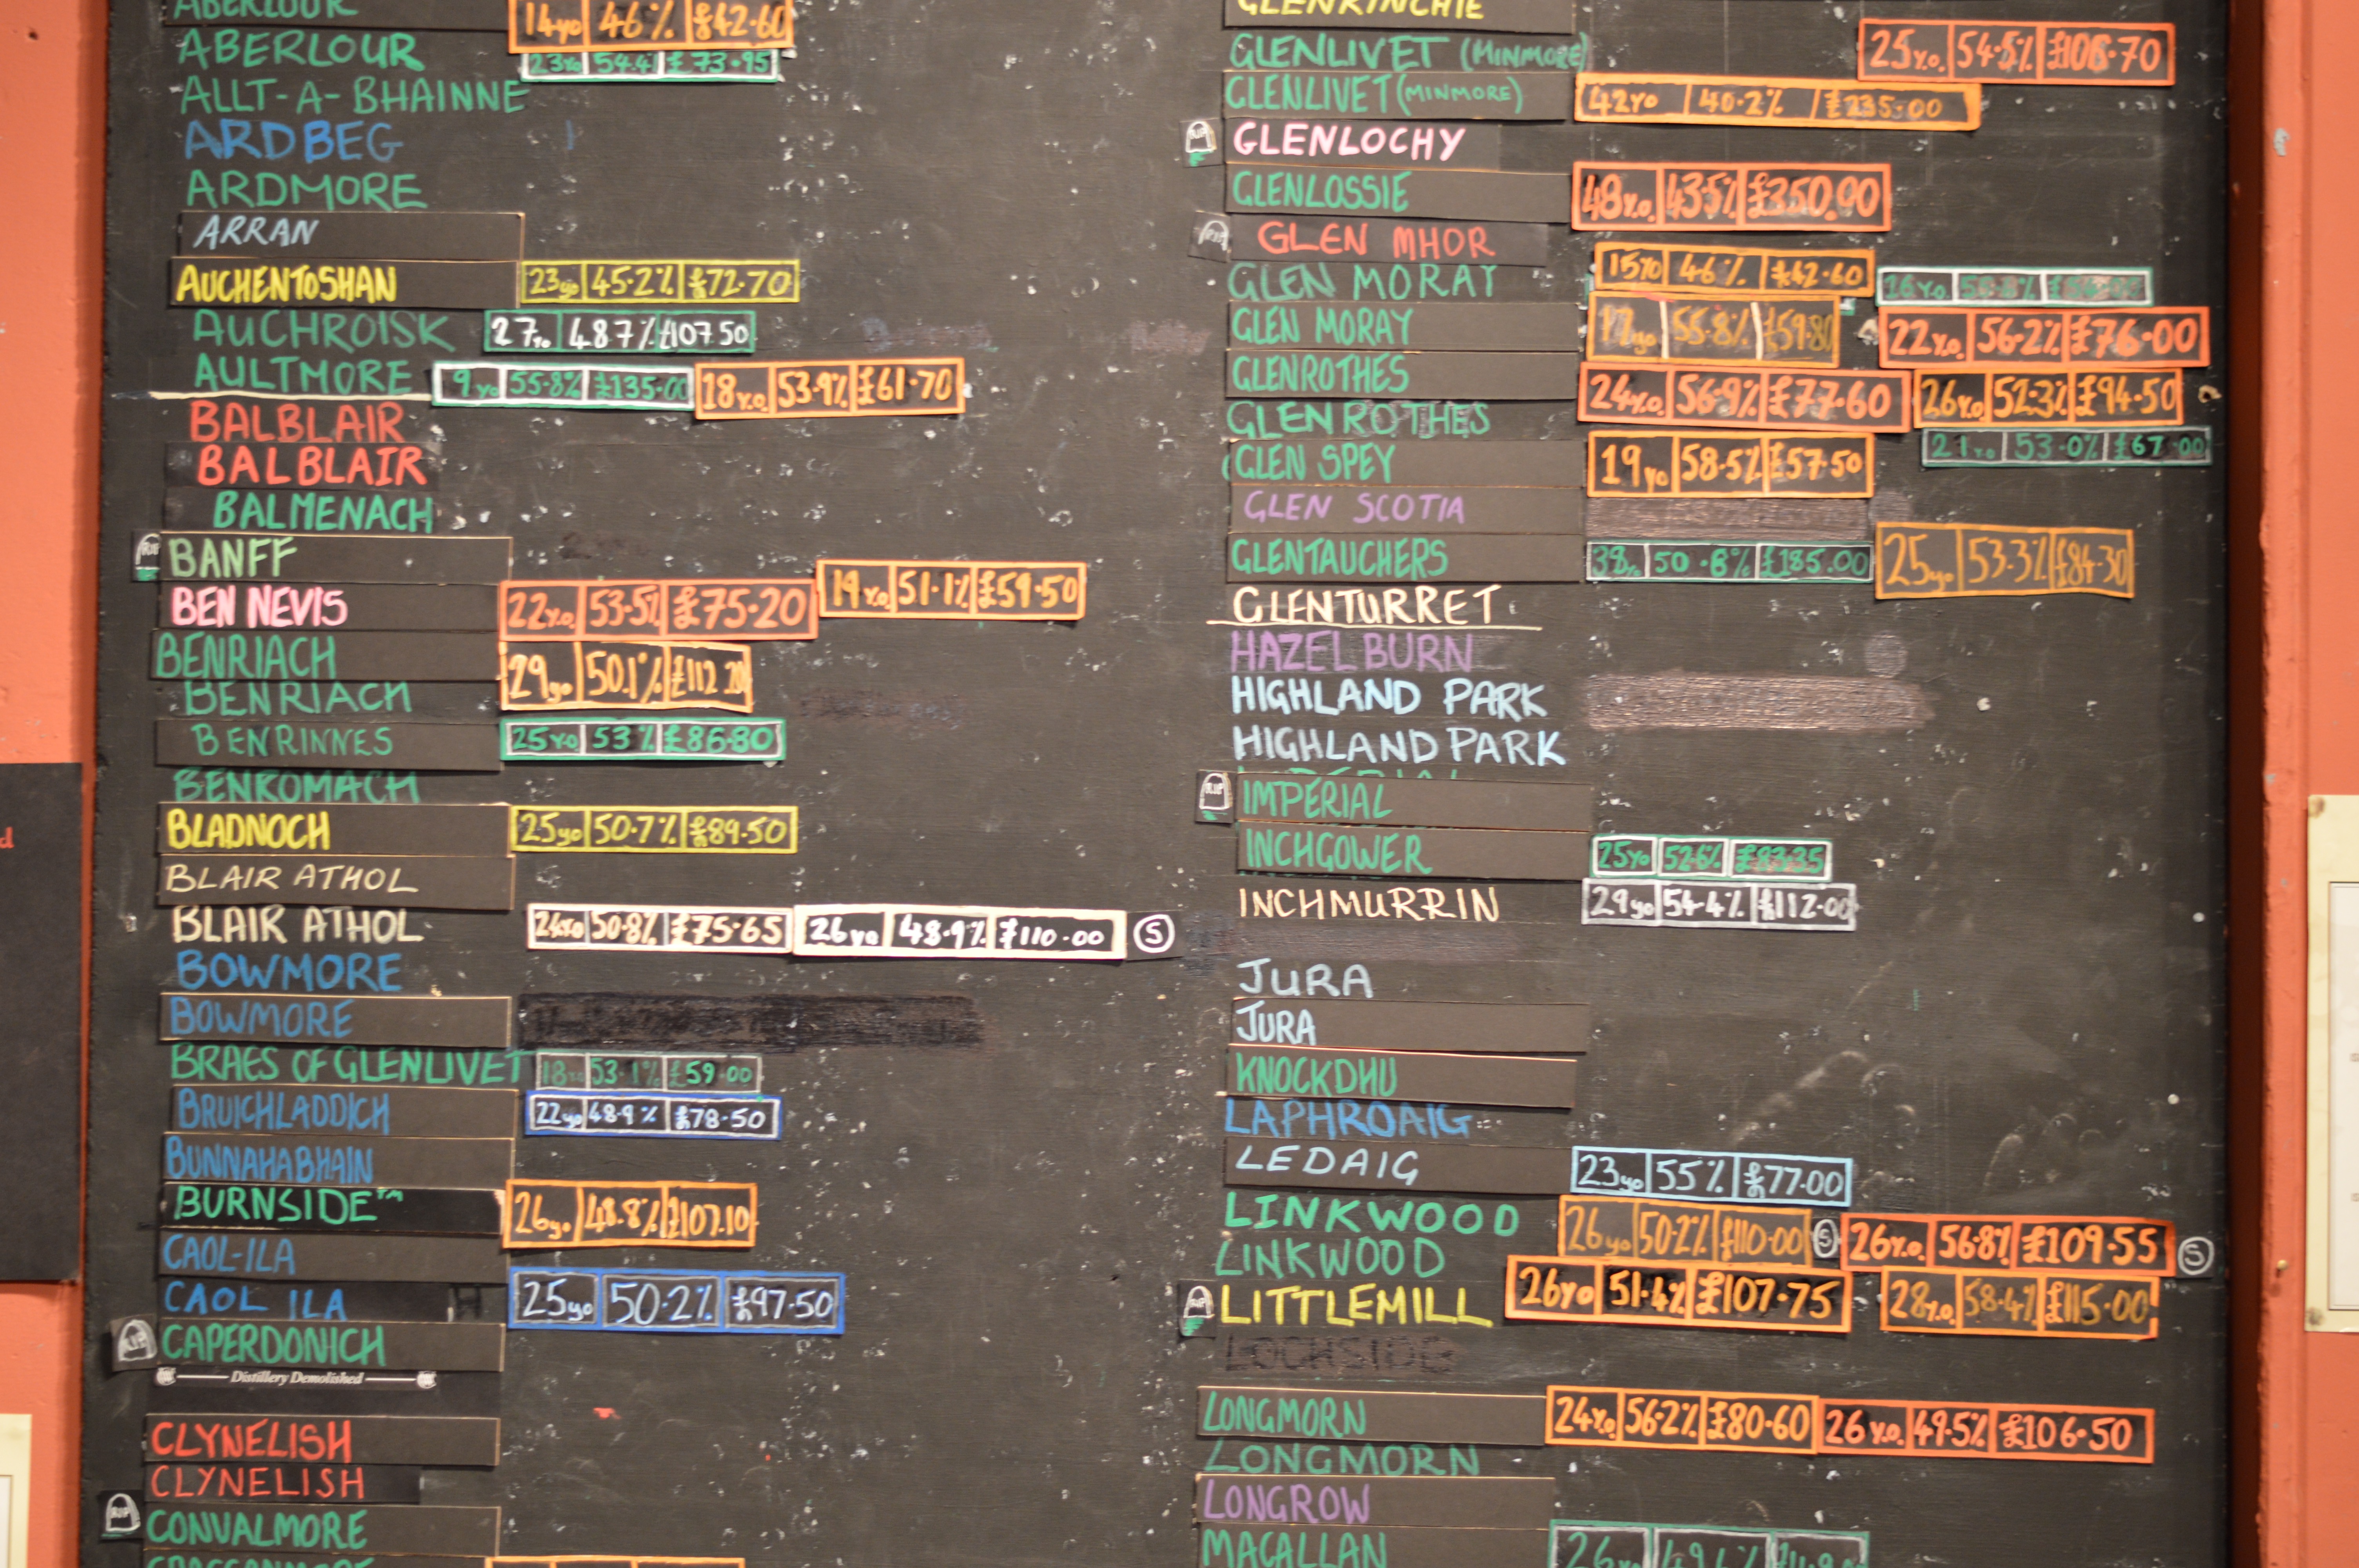 ABERLOUR 14yo 46% £42.60
ABERLOUR 23yo 54.4 £73.95
ALLT-A-BHAINNE
ARDBEG
ARDMORE
ARRAN
AUCHENTOSHAN 23yo 45.2% £72.70
AUCHROISK 27yo 48.7% £107.50
AULTMORE 9yo 55.8% £135.00 18y.o. 53.9% £61.70
BALBLAIR
BALBLAIR
BALMENACH
RIP BANFF
BEN NEVIS 22y.o. 53.5% £75.20 19y.o. 51.1% £59.50
BENRIACH 29yo 50.1% £112.20
BENRIACH
BENRINNES 25yo 53% £86.80
BENROMACH
BLADNOCH 25yo 50.7% £89.50
BLAIR ATHOL
BLAIR ATHOL 24yo 50.8% £75.65 26yo 48.9% £110.00 S
BOWMORE
BOWMORE
BRAES OF GLENLIVET 18yo 53.1% £59.00
BRUICHLADDICH 22yo 48.9% £78.50
BUNNAHABHAIN
BURNSIDE™ 26yo 48.8% £107.10
CAOL-ILA
CAOL ILA 25yo 50.2% £97.50
RIP CAPERDONICH
Distillery Demolished
CLYNELISH
CLYNELISH
RIP CONVALMORE
GLENKINCHIE
GLENLIVET (MINMORE) 25y.o. 54.5% £106.70
GLENLIVET (MINMORE) 42yo 40.2% £235.00
RIP GLENLOCHY
GLENLOSSIE 48y.o. 43.5% £350.00
RIP GLEN MHOR
GLEN MORAY 15yo 46% £42.60
GLEN MORAY 17yo 55.8% £59.80 22y.o. 56.2% £76.00
GLENROTHES 24y.o. 56.9% £77.60 26y.o. 52.3% £94.50
GLENROTHES 21yo 53.0% £67.00
GLEN SPEY 19yo 58.5% £57.50
GLEN SCOTIA
GLENTAUCHERS 38yo 50.8% £185.00 25yo 53.3% £84.30
GLENTURRET
HAZELBURN
HIGHLAND PARK
HIGHLAND PARK
RIP IMPERIAL
INCHGOWER 25yo 52.6% £83.25
INCHMURRIN 29yo 54.4% £112.00
JURA
JURA
KNOCKDHU
LAPHROAIG
LEDAIG 23yo 55% £77.00
LINKWOOD 26yo 50.2% £110.00 S 26y.o. 56.8% £109.55 S
LINKWOOD
RIP LITTLEMILL 26yo 51.4% £107.75 28y.o. 58.4% £115.00
LOCHSIDE
LONGMORN 24y.o. 56.2% £80.60 26y.o. 49.5% £106.50
LONGMORN
LONGROW
MACALLAN 26yo